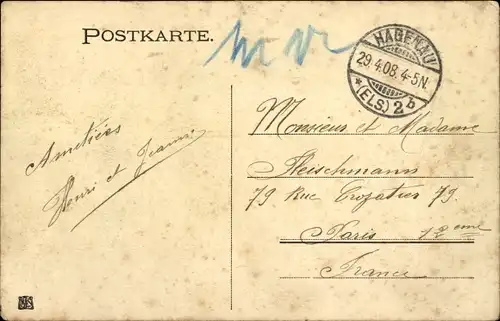 POSTKARTE.
HAGENAU
29.4.08. 4-5N.
* (ELS.) 2b
Amitiées
Henri et Jeanne
Monsieur et Madame
Fleischmann
79 Rue Crozatier 79.
Paris 12eme
France